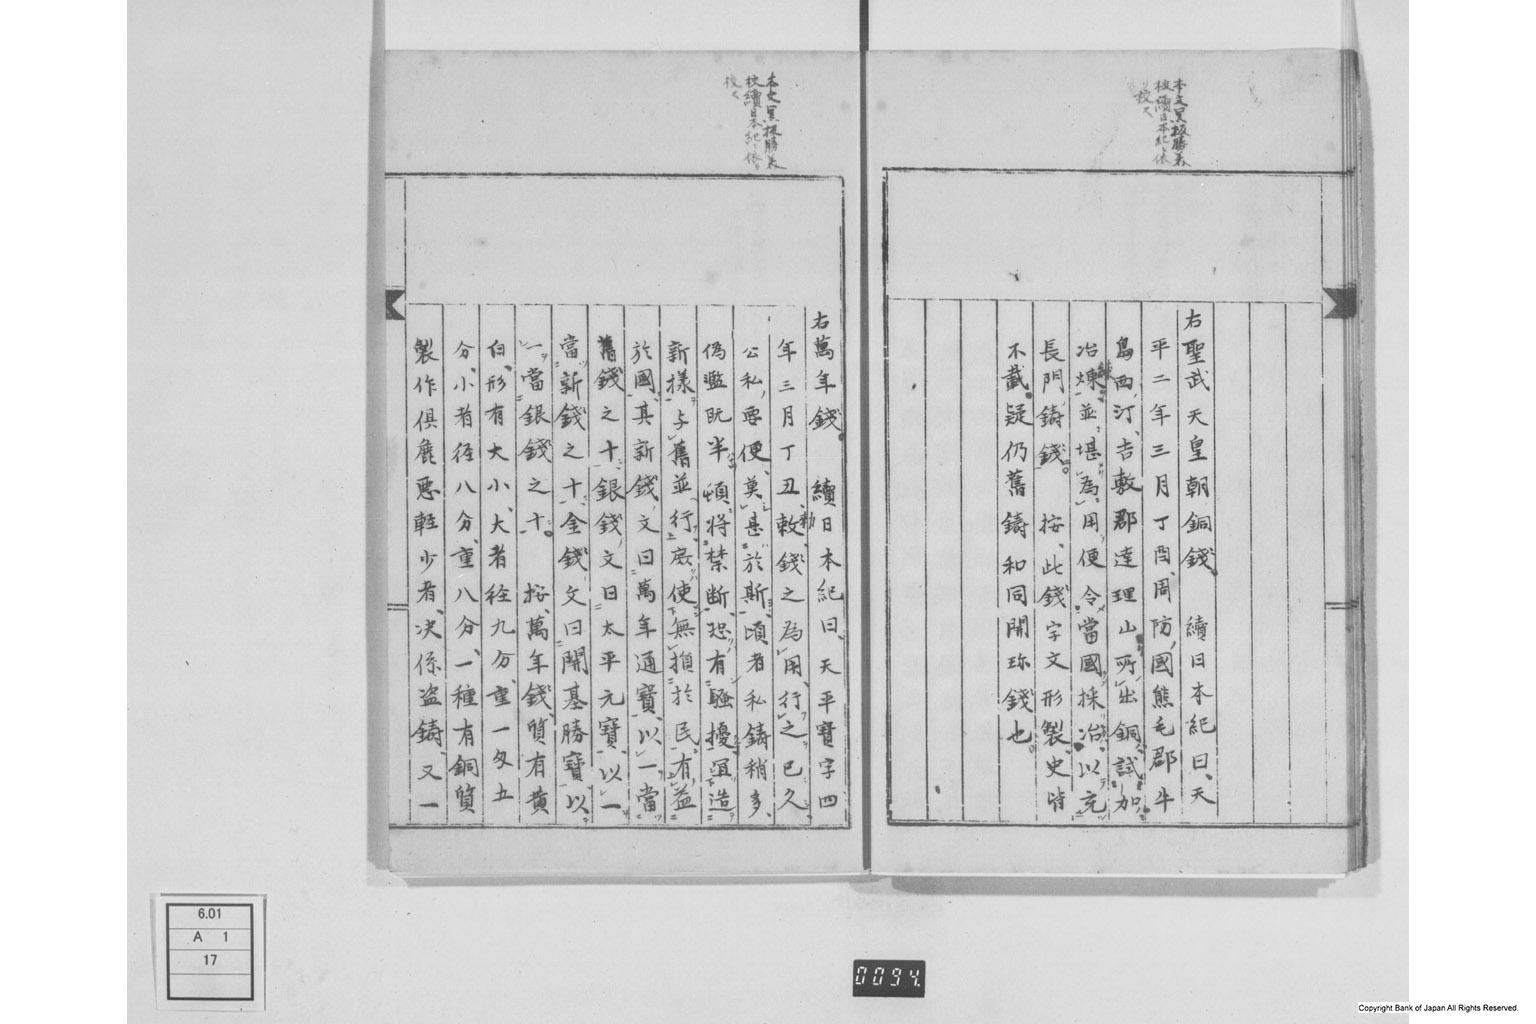 本文黒板勝美
校續日本紀ニ依リ
校ス
右聖武天皇朝銅錢。 續日本紀曰、天
平二年三月丁酉、周防國熊毛郡牛
島西汀、吉敷郡達理山所出銅、試加
冶煉、並堪為用、便令當國採冶、以充
長門鑄錢。 按、此錢字文形製、史皆
不載。疑仍舊鑄和同開珎錢也。
本文黒板勝美
校續日本紀ニ依リ
校ス
右萬年錢。 續日本紀曰、天平寶字四
年三月丁丑、勅、錢之為用、行之已久
公私要便、莫甚於斯、頃者私鑄稍多、
偽濫既半、頓將禁斷、恐有騷擾、宜造
新樣、与舊並行、庶使無損於民、有益
於國、其新錢、文曰萬年通寶、以一當
舊錢之十、銀錢、文曰太平元寶、以一
當新錢之十、金錢、文曰開基勝寶、以
一當銀錢之十。 按、萬年錢、質有黄
白、形有大小、大者径九分、重一匁五
分、小者径八分、重八分、一種有銅質
製作俱麁悪軽少者、决係盗鑄、又一
6.01
A 1
17
0094
Copyright Bank of Japan All Rights Reserved.